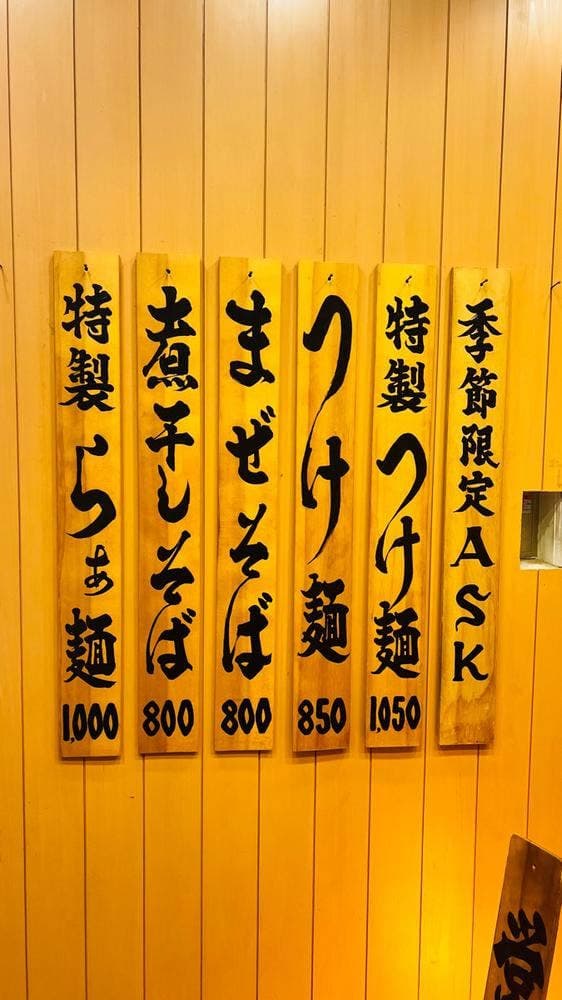 季節限定ASK
特製つけ麺
1,050
つけ麺
850
まぜそば
800
煮干しそば
800
特製らぁ麺
1,000